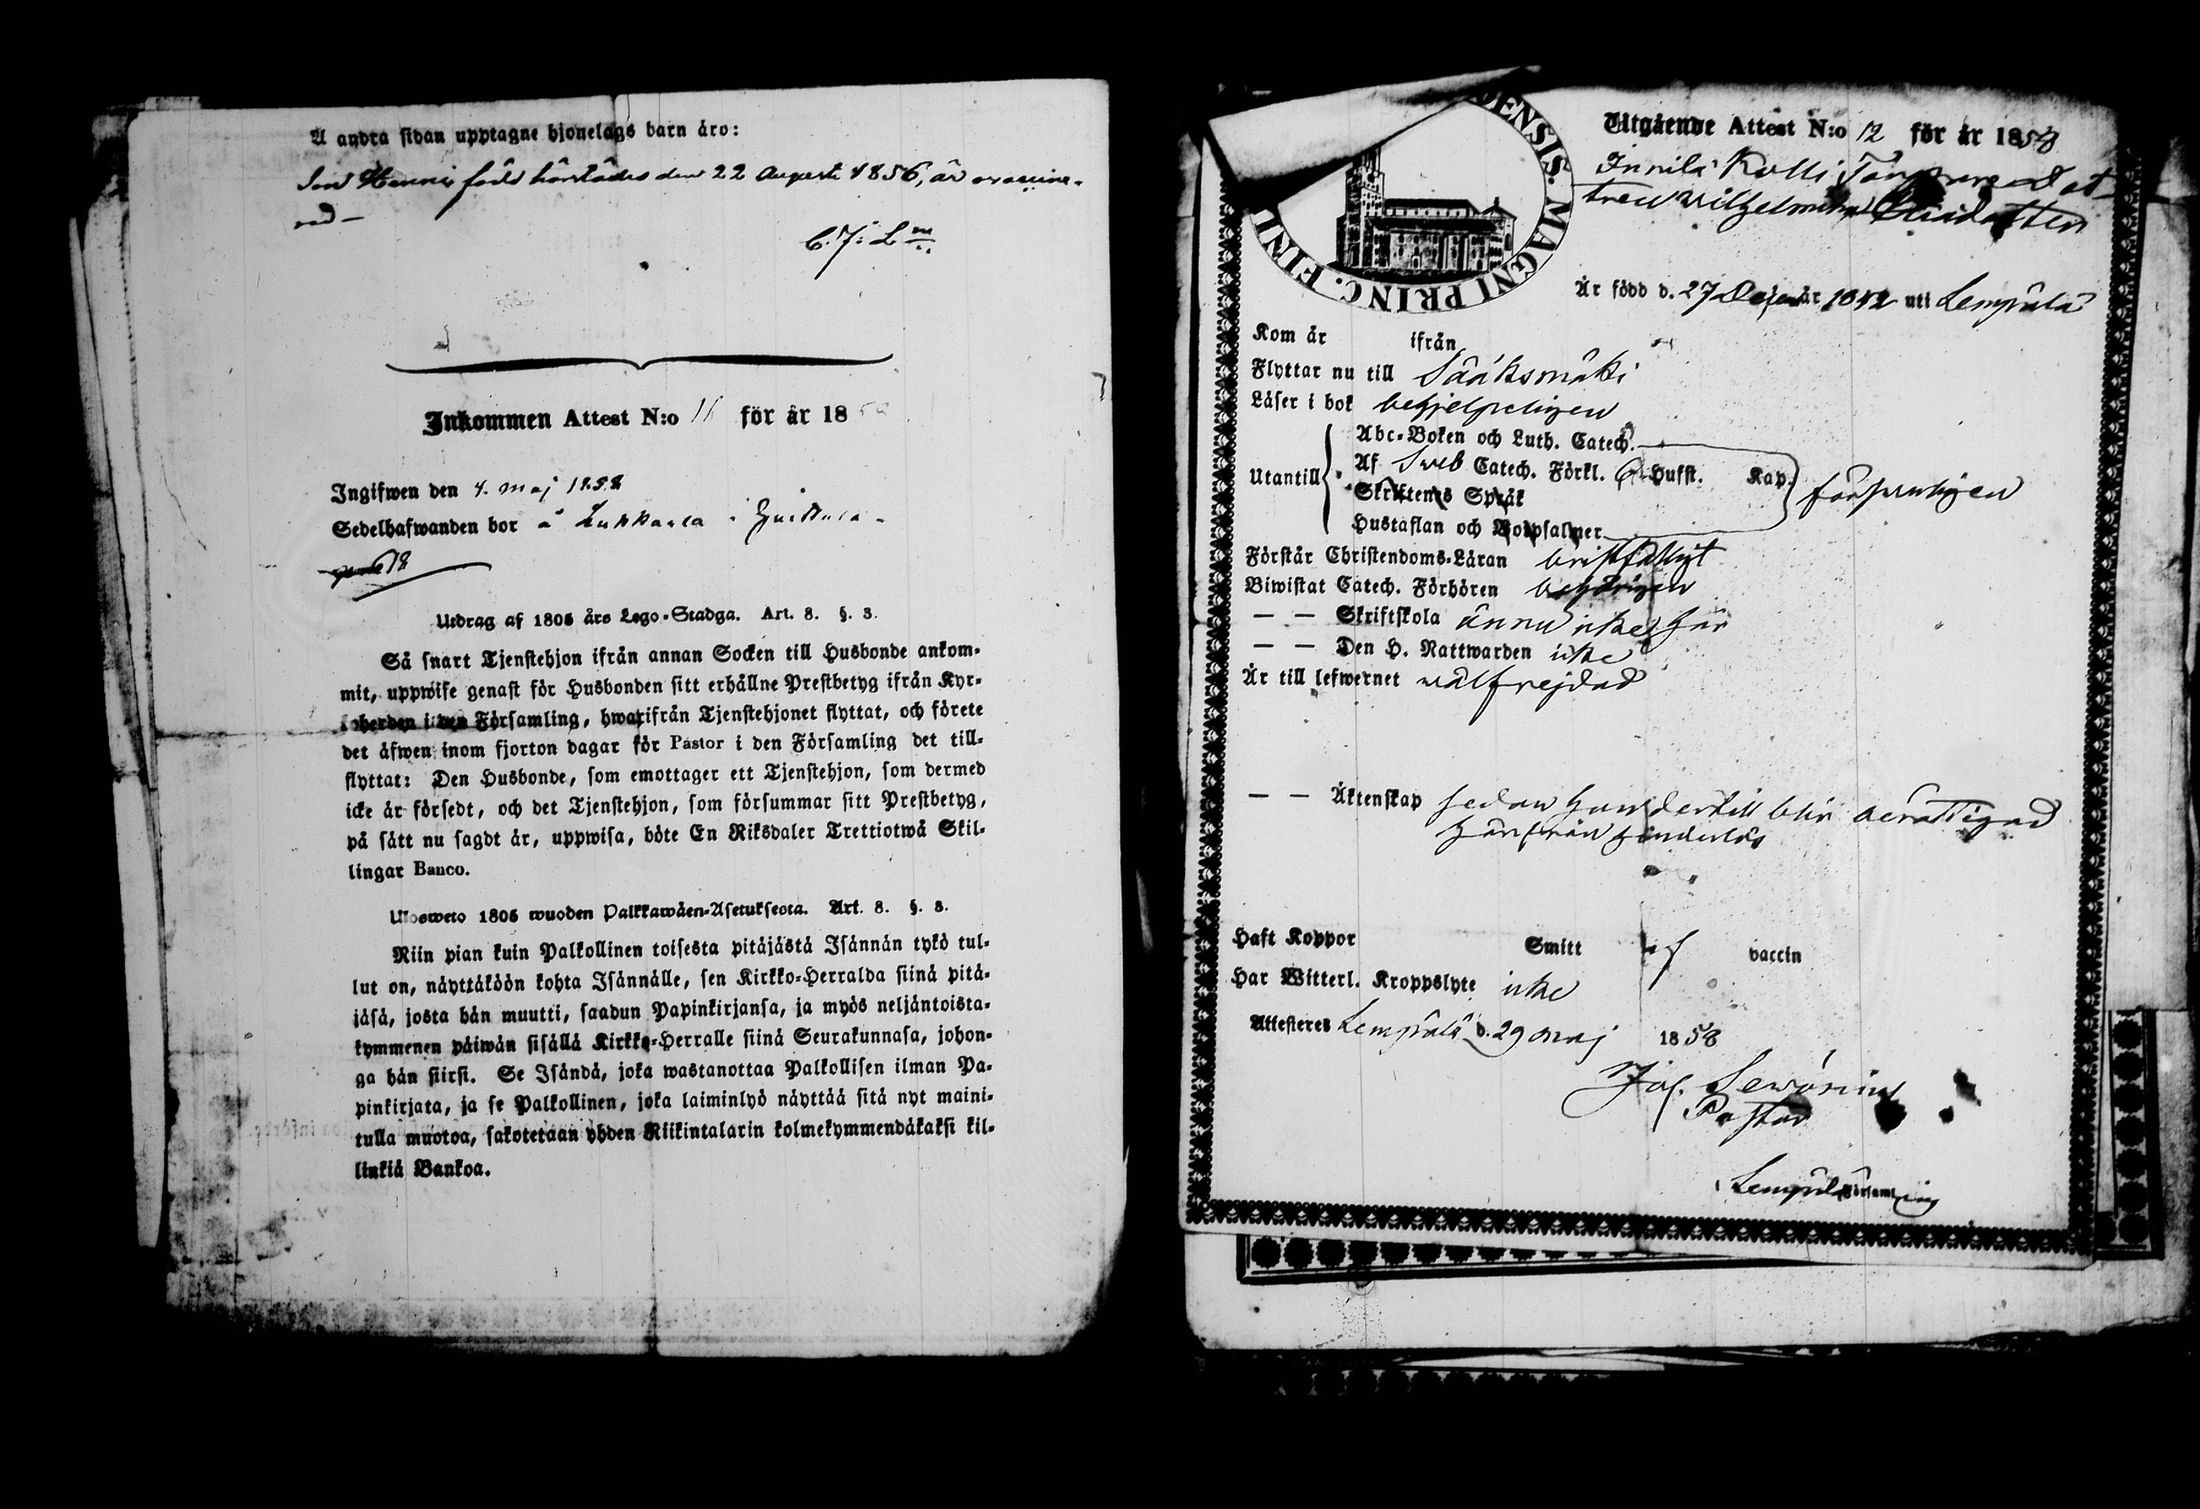 Å andra sidan upptagne hjonelags barn äro:
Son Henric född härstädes den 22 Augusti 1856, är vaccine-
rad –
C. F: L
Inkommen Attest N:o 11 för år 185
Ingifwen den 4. maj 1858
Sedelhafwanden bor å Lukkarla i Huittula
Utdrag af 1805 års Lego-Stadga. Art. 8. §. 3.
Så snart Tjenstehjon ifrån annan Socken till Husbonde ankom-
mit, uppwise genast för Husbonden sitt erhållne Prestbetyg ifrån Kyr-
koherden i den Församling, hwarifrån Tjenstehjonet flyttat, och förete
det äfwen inom fjorton dagar för Pastor i den Församling det till-
flyttat: Den Husbonde, som emottager ett Tjenstehjon, som dermed
icke är försedt, och det Tjenstehjon, som försummar sitt Prestbetyg,
på sätt nu sagdt är, uppwisa, böte En Riksdaler Trettiotwå Skil-
lingar Banco.
Ulosweto 1805 wuoden Palkkawäen-Asetuksesta. Art. 8. §. 3.
Niin pian kuin Palkollinen toisesta pitäjästä Isännän tykö tul-
lut on, näyttäköön kohta Isännälle, sen Kirkko-Herralda siinä pitä-
jäsä, josta hän muutti, saadun Papinkirjansa, ja myös neljäntoista-
kymmenen päiwän sisällä Kirkko-Herralle siinä Seurakunnasa, johon-
ga hän siirsi. Se Isändä, joka wastanottaa Palkollisen ilman Pa-
pinkirjata, ja se Palkollinen, joka laiminlyö näyttää sitä nyt maini-
tulla muotoa, sakotetaan yhden Riikintalarin kolmekymmendäkaksi kil-
linkiä Bankoa.
ENSIS. MAGNI PRINC. FINL
Utgående Attest N:o 12 för år 1858
Innilä Kolli Torpare dot
tren Wilhelmina
Är född d. 27 Decem år 1842 uti Lempälä
Kom år ifrån
Flyttar nu till Sääksmäki
Läser i bok behjelpeligen
Utantill
Abc-Boken och Luth. Catech.
Af Sweb Catech. Förkl. 6 Hufst. Kap.
Skriftenes Språk
Hustaflan och Botpsalmer
försvarligen
Förstår Christendoms-Läran bristfälligt
Biwistat Catech. Förhören behörigen
— — Skriftskola ännu icke här
— — Den H. Nattwarden icke
Är till lefwernet wälfrejdad
— — Äktenskap sedan hon dertill blir berättigad
härifrån hinderlös
Haft Koppor Smitt af vaccin
Har Witterl. Kroppslyte icke
Attesteres Lempälä d. 29 maj 1858
Jos. Sewonius
Pastor
Lempälä Församling